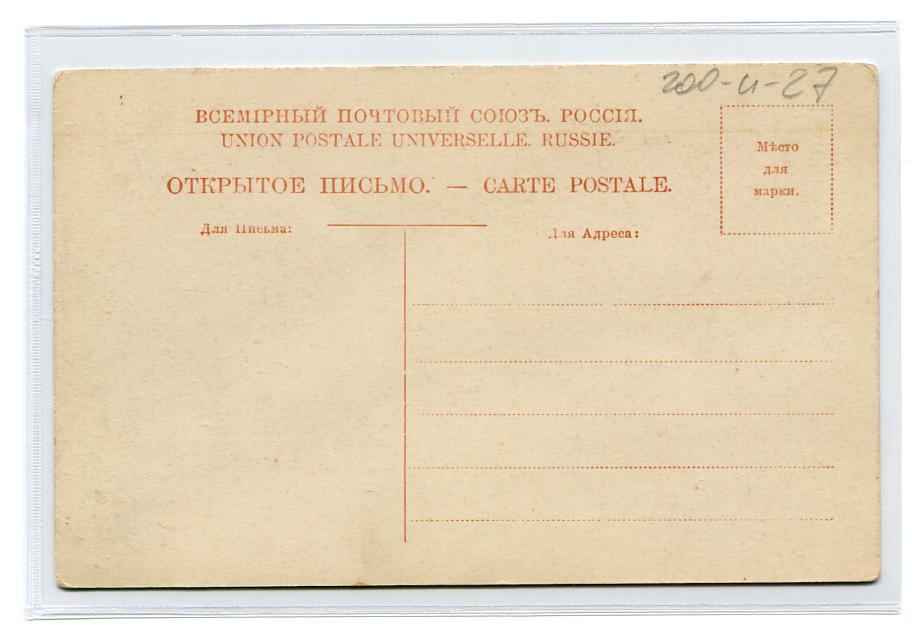 200-11-27
ВСЕМІРНЫЙ ПОЧТОВЫЙ СОЮЗЪ. РОССІЯ.
UNION POSTALE UNIVERSELLE. RUSSIE.
ОТКРЫТОЕ ПИСЬМО. — CARTE POSTALE.
Мѣсто
для
марки.
Для Письма:
Для Адреса: